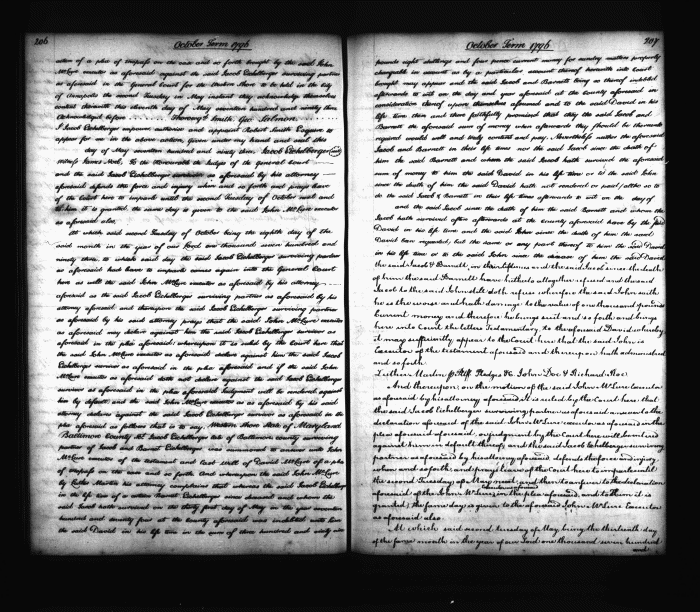 206
October Term 1796
action of a plea of trespass on the case and so forth brought by the said John
McLure executor as aforesaid against the said Jacob Eichelberger surviving partner
as aforesaid in the General Court for the Western Shore to be held in the city
contra herewith this eleventh day of May seventeen hundred and ninety three
Acknowledged before
I Jacob Eichelberger empower authorise and appoint Robert Smith Esquire to
appear for me in the above action given under my hand and seal this
day of May seventeen hundred and ninety three Jacob Eichelberger
witness James Noel. To the Honorable the Judges of the general court
and the said Jacob Eichelberger survivor as aforesaid by his attorney
aforesaid defends the force and injury when and so forth and prays leave
of the Court here to imparle until the second Tuesday of October next and
to him it is granted the same day is given to the said John McLure executor
as aforesaid also.
At which said second Tuesday of October being the eighth day of the
said month in the year of our Lord one thousand seven hundred and
ninety three to which said day the said Jacob Eichelberger surviving partner
as aforesaid had leave to imparle comes again into the General Court
here as well the said John McLure executor as aforesaid by his attorney
aforesaid as the said Jacob Eichelberger surviving partner as aforesaid by his
attorney aforesaid and thereupon the said Jacob Eichelberger surviving partner
as aforesaid by his said attorney prays that the said John McLure executor
as aforesaid may declare against him the said Jacob Eichelberger survivor as
aforesaid in the plea aforesaid whereupon it is ruled by the Court here that
the said John McLure executor as aforesaid declare against him the said Jacob
Eichelberger survivor as aforesaid in the plea aforesaid and if the said John
McLure executor as aforesaid doth not declare against the said Jacob Eichelberger
survivor as aforesaid in the plea aforesaid judgment will be rendered against
him by default and the said John McLure executor as aforesaid by his said
attorney declares against the said Jacob Eichelberger survivor as aforesaid in the
plea aforesaid as follows that is to say. Western Shore State of Maryland
Baltimore County Sc. Jacob Eichelberger late of Baltimore county surviving
partner of Jacob and Barnett Eichelberger was summoned to answer unto John
McLure executor of the testament and last will of David McLure of a plea
of trespass on the case and so forth. And whereupon the said John McLure
by Luther Martin his attorney complains that whereas the said Jacob Eichelberger
in the life time of a certain Barnet Eichelberger since deceased and whom the
said Jacob hath survived on the thirty first day of May in the year seventeen
hundred and ninety four at the county aforesaid was indebted unto him
the said David in his life time in the sum of three hundred and sixty nine
207
October Term 1796
pounds eight shillings and four pence current money for sundry matters properly
chargeable in account as by a particular account thereof herewith into Court
brought may appear and the said Jacob and Barnett being so thereof indebted
afterwards to wit on the day and year aforesaid at the county aforesaid in
consideration thereof upon themselves assumed and to the said David in his
life time then and there faithfully promised that they the said Jacob and
Barnett the aforesaid sum of money when afterwards they should be thereunto
required would well and truly content and pay. Nevertheless neither the aforesaid
Jacob and Barnett in their life time nor the said Jacob since the death of
him the said Barnett and whom the said Jacob hath survived the aforesaid
sum of money to him the said David in his life time or to the said John
since the death of him the said David hath not rendered or paid altho so to
do the said Jacob & Barnett in their life time afterwards to wit on the day of
and the said Jacob since the death of him the said Barnett and whom the
Jacob hath survived often afterwards at the county aforesaid have by the said
David in his life time and the said John since the death of him the said
David been requested, but the same or any part thereof to him the said David
in his life time or to the said John since the decease of him the said David
the said Jacob & Barnett in their lifetimes and the said Jacob since the death
of him the said Barnett have hitherto altogether refused and the said
Jacob to the said John still doth refuse wherefore the said John saith
he is the worse and hath damage to the value of one thousand pounds
current money and therefore he brings suit and so forth and brings
here into Court the letters Testamentary to the aforesaid David whereby
it may sufficiently appear to the Court here that the said John is
Executor of the testament aforesaid and thereupon hath administred
and so forth.
Luther Martin p Plff. Pledges &c. John Doe & Richard Roe.
And thereupon, on the motion of the said John McLure Executor
as aforesaid by his attorney aforesaid It is ruled by the Court here that
the said Jacob Eichelberger surviving partner as aforesaid answer to the
declaration aforesaid of the said John McLure executor as aforesaid in the
plea aforesaid otherwise judgment by the Court here will be entered
against him on default thereof and the said Jacob Eichelberger surviving
partner as aforesaid by his attorney aforesaid defends the force and injury
when and so forth and prays leave of the Court here to imparle until
the second Tuesday of May next and then to answer to the declaration
aforesaid of the John McLure executor as aforesaid in the plea aforesaid, and to him it is
granted; the same day is given to the aforesaid John McLure Executor
as aforesaid also.
At which said second tuesday of May being the thirteenth day
of the same month in the year of our Lord one thousand seven hundred
and